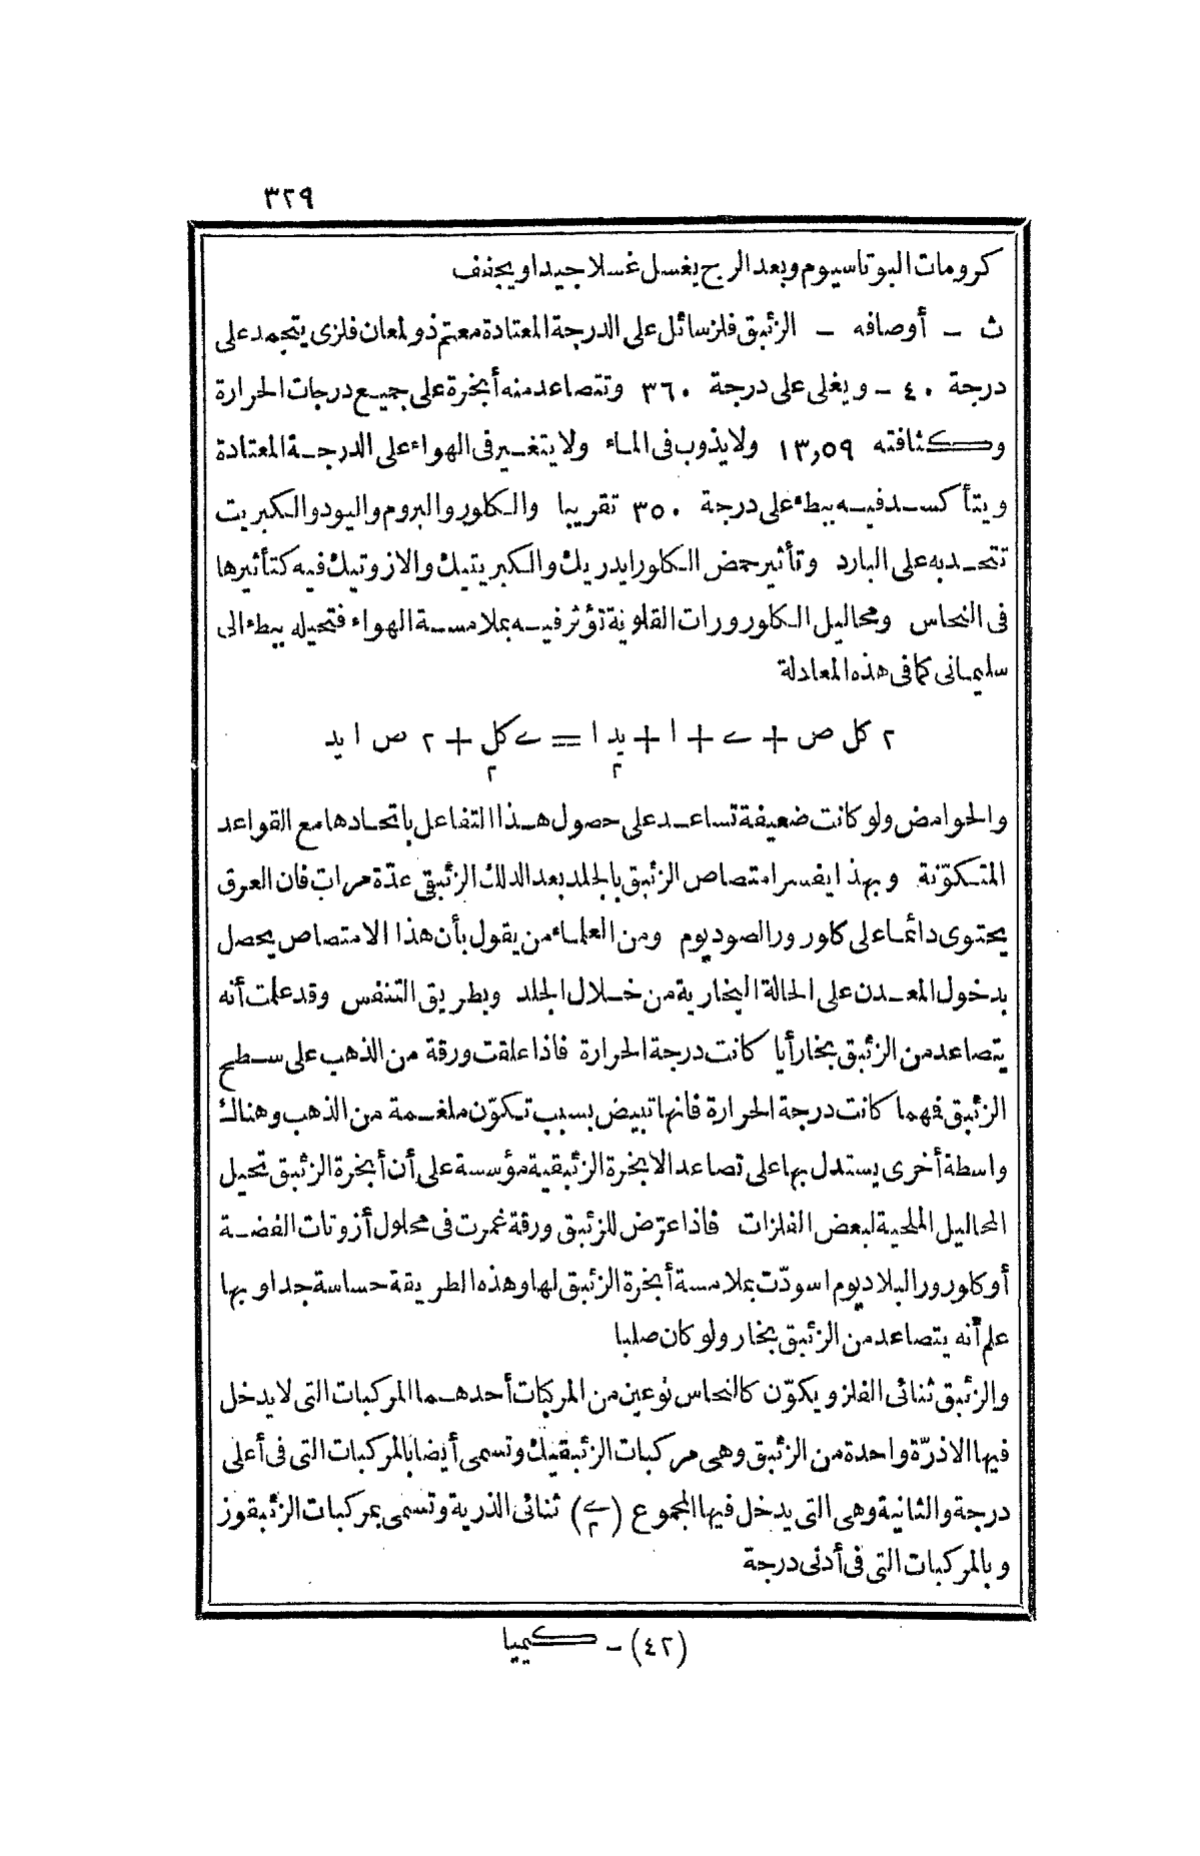 ٣٢٩
كرومات البوتاسيوم وبعد الرج يغسل غسلا جيدا ويجفف
ث - أوصافه - الزئبق فلز سائل على الدرجة المعتادة معتم ذو لمعان فلزى يتجمد على
درجة ٤٠ - ويغلى على درجة ٣٦٠ وتتصاعد منه أبخرة على جميع درجات الحرارة
وكثافته ١٣,٥٩ ولا يذوب فى الماء ولا يتغير فى الهواء على الدرجة المعتادة
ويتأكسد فيه ببطء على درجة ٣٥٠ تقريبا والكلور والبروم واليود والكبريت
تتحد به على البارد وتأثير حمض الكلورايدريك والكبريتيك والازوتيك فيه كتأثيرها
فى النحاس ومحاليل الكلورورات القلوية تؤثر فيه بملامسة الهواء فتحيله ببطء الى
سليمانى كما فى هذه المعادلة
٢ كل ص + ے + ا + يد٢ ا = ے كل٢ + ٢ ص ا يد
والحوامض ولو كانت ضعيفة تساعد على حصول هذا التفاعل باتحادها مع القواعد
المتكوّنة وبهذا يفسر امتصاص الزئبق بالجلد بعد الدلك الزئبقى عدّة مرات فان العرق
يحتوى دائما على كلورور الصوديوم ومن العلماء من يقول بأن هذا الامتصاص يحصل
بدخول المعدن على الحالة البخارية من خلال الجلد وبطريق التنفس وقد علمت أنه
يتصاعد من الزئبق بخار أيا كانت درجة الحرارة فاذا علقت ورقة من الذهب على سطح
الزئبق فهما كانت درجة الحرارة فانها تبيض بسبب تكوّن ملغمة من الذهب وهناك
واسطة أخرى يستدل بها على تصاعد الابخرة الزئبقية مؤسسة على أن أبخرة الزئبق تحيل
المحاليل الملحية لبعض الفلزات فاذا عرّض للزئبق ورقة غمرت فى محلول أزوتات الفضة
أو كلورور البلاديوم اسودّت بملامسة أبخرة الزئبق لها وهذه الطريقة حساسة جدا وبها
علم أنه يتصاعد من الزئبق بخار ولو كان صلبا
والزئبق ثنائى الفلز ويكوّن كالنحاس نوعين من المركبات أحدهما المركبات التى لا يدخل
فيها الا ذرّة واحدة من الزئبق وهى مركبات الزئبقيك وتسمى أيضا بالمركبات التى فى أعلى
درجة والثانية وهى التى يدخل فيها المجموع (ے٢) ثنائى الذرية وتسمى بمركبات الزئبقوز
وبالمركبات التى فى أدنى درجة
(٤٢) - كيميا